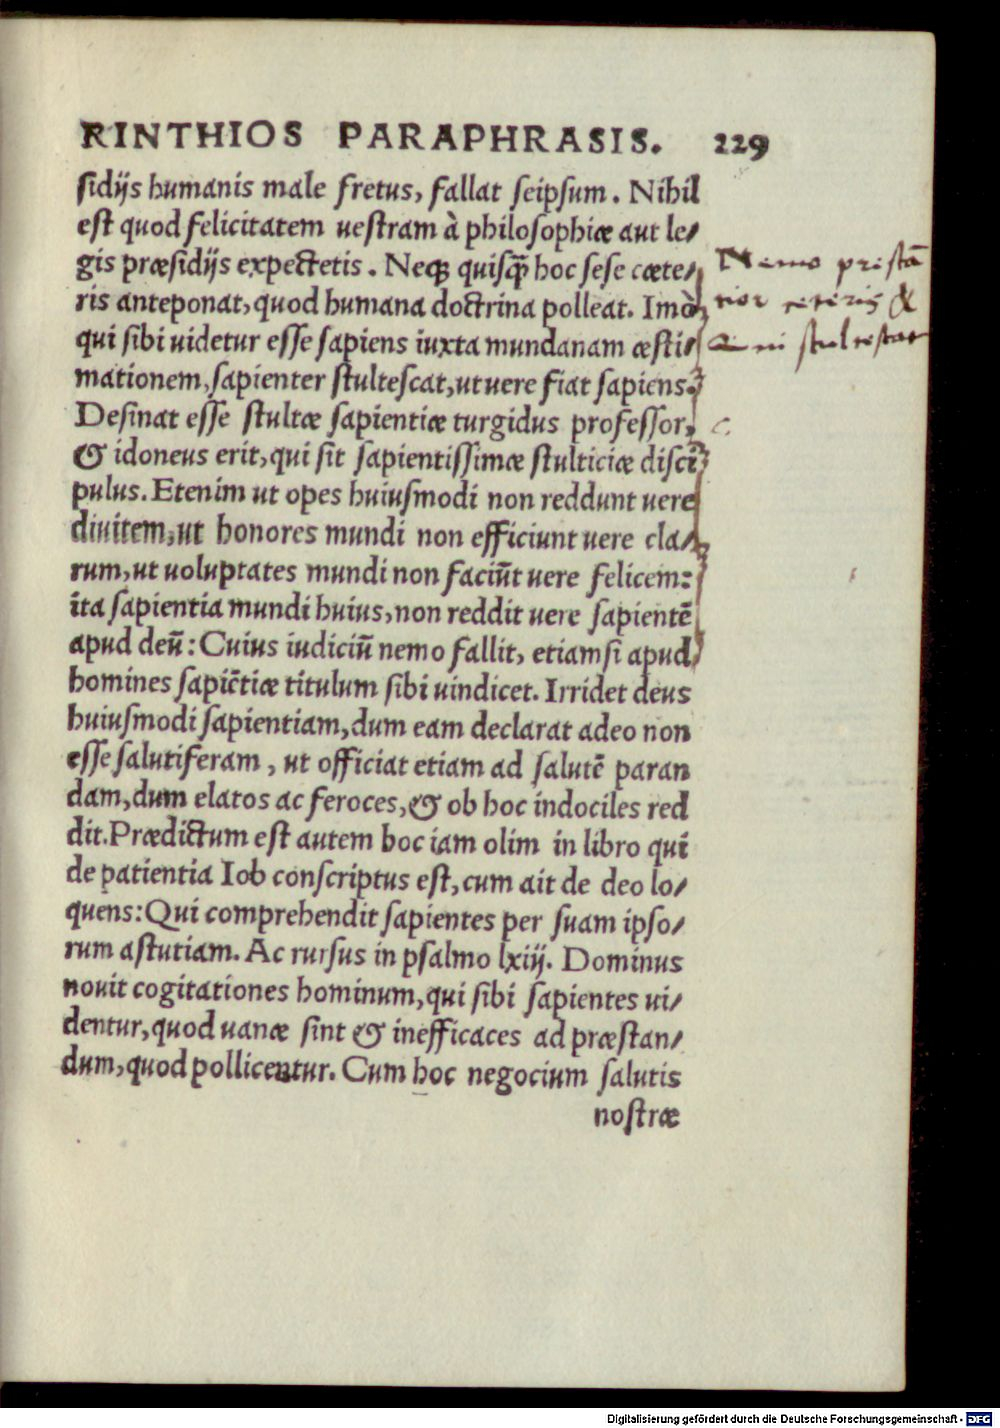 RINTHIOS PARAPHRASIS. 229
sidijs humanis male fretus, fallat seipsum. Nihil
est quod felicitatem uestram à philosophiæ aut le/
gis præsidijs expectetis. Neqꝫ quisq̃ hoc sese cæte/
ris anteponat, quod humana doctrina polleat. Imò
qui sibi uidetur esse sapiens iuxta mundanam æsti/
mationem, sapienter stultescat, ut uere fiat sapiens.
Desinat esse stultæ sapientiæ turgidus professor,
& idoneus erit, qui sit sapientissimæ stulticiæ disci
pulus. Etenim ut opes huiusmodi non reddunt uere
diuitem, ut honores mundi non efficiunt uere cla/
rum, ut uoluptates mundi non faciũt uere felicem:
ita sapientia mundi huius, non reddit uere sapientẽ
apud deũ: Cuius iudiciũ nemo fallit, etiamsi apud
homines sapiẽtiæ titulum sibi uindicet. Irridet deus
huiusmodi sapientiam, dum eam declarat adeo non
esse salutiferam, ut officiat etiam ad salutẽ paran
dam, dum elatos ac feroces, & ob hoc indociles red
dit. Prædictum est autem hoc iam olim in libro qui
de patientia Iob conscriptus est, cum ait de deo lo/
quens: Qui comprehendit sapientes per suam ipso/
rum astutiam. Ac rursus in psalmo lxiij. Dominus
nouit cogitationes hominum, qui sibi sapientes ui/
dentur, quod uanæ sint & inefficaces ad præstan/
dum, quod pollicentur. Cum hoc negocium salutis
nostræ
Nemo prestã
tior ceteris &
Qui stultescat
Digitalisierung gefördert durch die Deutsche Forschungsgemeinschaft - DFG